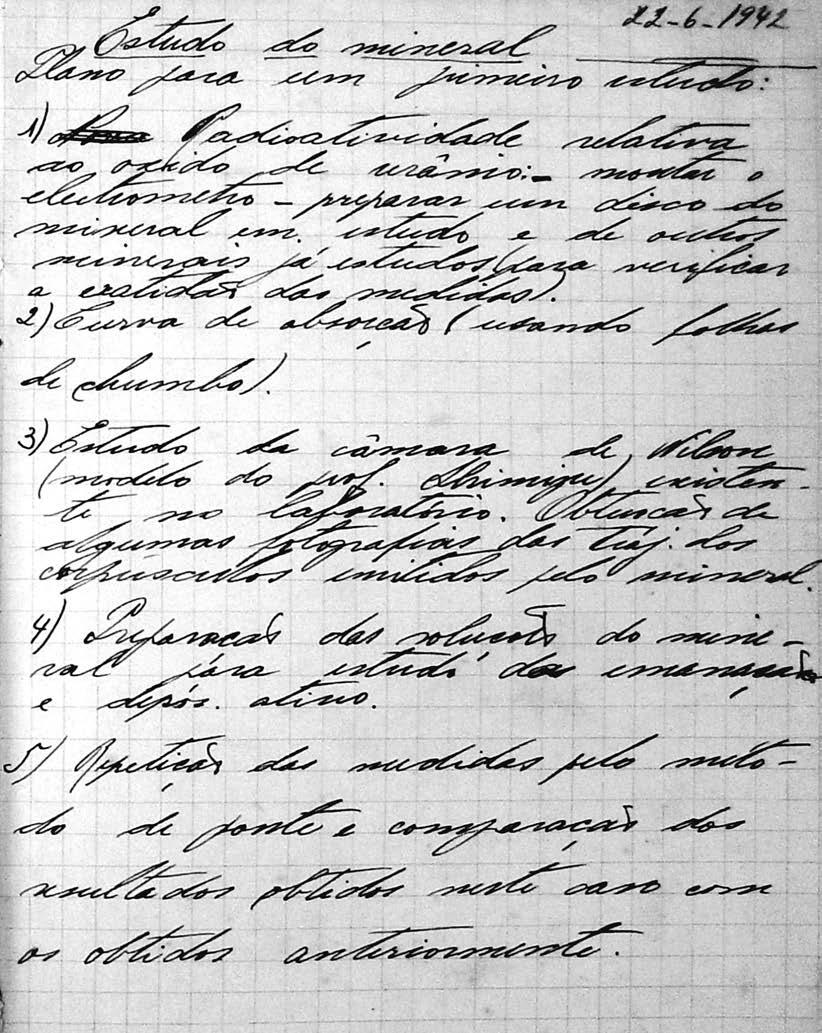 22-6-1942
Estudo do mineral
Plano para um primeiro estudo:
1) Radioatividade relativa
ao oxido de urânio:- montar o
electrometro - preparar um disco do
mineral em estudo e de outros
minerais já estudos (para verificar
a exatidão das medidas).
2) Curva de absorção (usando folhas
de chumbo).
3) Estudo da câmara de Wilson
(modelo do prof. Shimizu) existen-
te no laboratório. Obtenção de
algumas fotografias das traj. dos
corpusculos emitidos pelo mineral.
4) Preparação das soluções do mine-
ral para estudo da emanação
e depós. ativo.
5) Repetição das medidas pelo méto-
do de ponte e comparação dos
resultados obtidos neste caso com
os obtidos anteriormente.